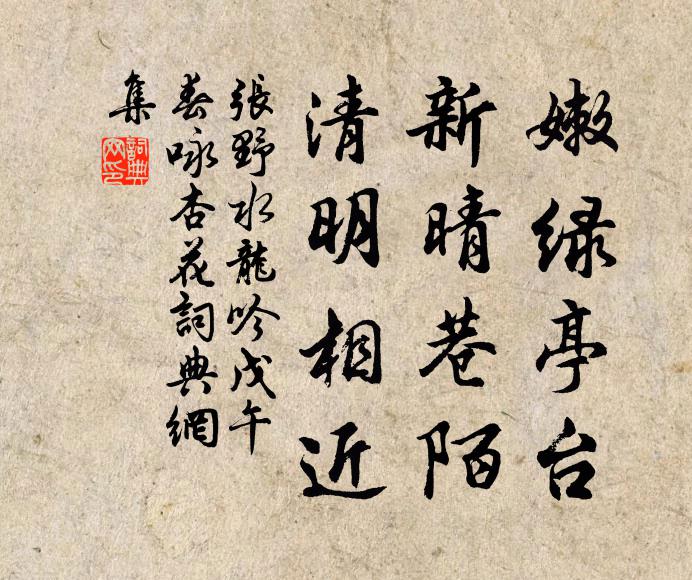 嫩绿亭台
新晴巷陌
清明相近
張野水龍吟戊午
春咏杏花詞典網
集
詞典
网印